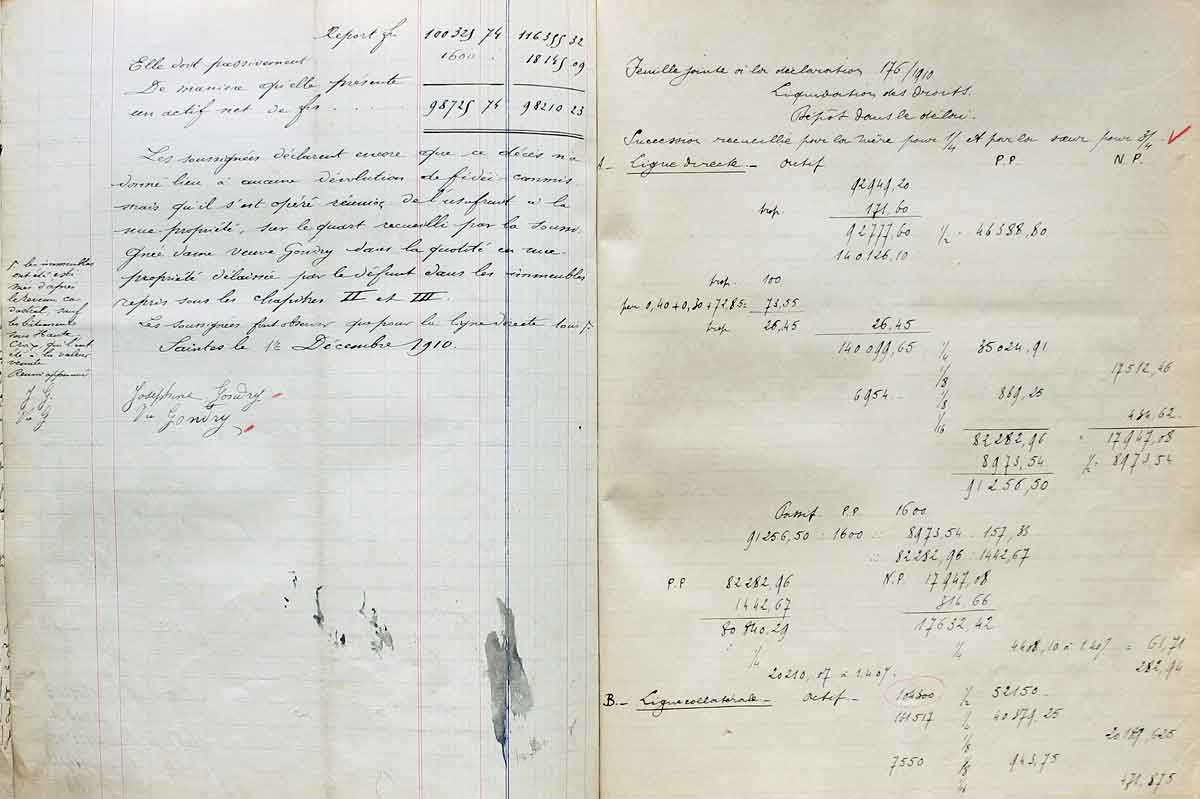 Report fr 100325 74 116355 32
Elle doit passivement 1600 . 18145 09
De manière qu'elle présente
un actif net de frs . . . . 98725 74 98210 23
Les soussignées déclarent encore que ce décès n'a
donné lieu à aucune dévolution de fidéi-commis
mais qu'il s'est opéré réunion de l'usufruit à la
nue propriété, sur le quart recueilli par la sous-
signée dame veuve Gondry dans la quotité en nue-
propriété délaissée par le défunt dans les immeubles
repris sous les chapitres II et III.
Les soussignées font observer que pour la ligne directe tous
Saintes le 12 Décembre 1910.
les immeubles
ont été esti-
més d'après
le revenu ca-
dastral, sauf
les bâtiments
Croix, qui l'ont
été à la valeur
vénale
Renvoi approuvé
J. G.
Ve G
Joséphine Gondry
Ve Gondry
Feuille jointe à la déclaration 176/1910
Liquidation des droits.
Dépôt dans le délai.
Succession recueillie par la mère pour 1/4 et par la sœur pour 3/4
A. Ligne directe - actif P.P. N.P.
92949,20
trop. 171,60
92777,60 1/2 = 46388,80
140126,10
trop 100
per 0,40+0,30+72,85= 73,55
trop 26,45 26,45
140099,65 1/4 35024,91
1/8 17512,46
6954 1/8 869,25
1/16 434,62
82282,96 17947,08
8973,54 1/2= 8973,54
91256,50
Passif P.P. 1600
91256,50 : 1600 :: 8973,54 : 157,33
:: 82282,96 : 1442,67
P.P 82282,96 N.P. 17947,08
1442,67 314,66
80840,29 17632,42
1/4 1/4 4408,10 à 1.40% = 61,71
20210,07 à 1.40% 282,94
B. - Ligne collatérale - actif - 104300 1/2 52150
1/4 40879,25
1/8 20439,625
7550 1/8 943,75
1/16 471,875